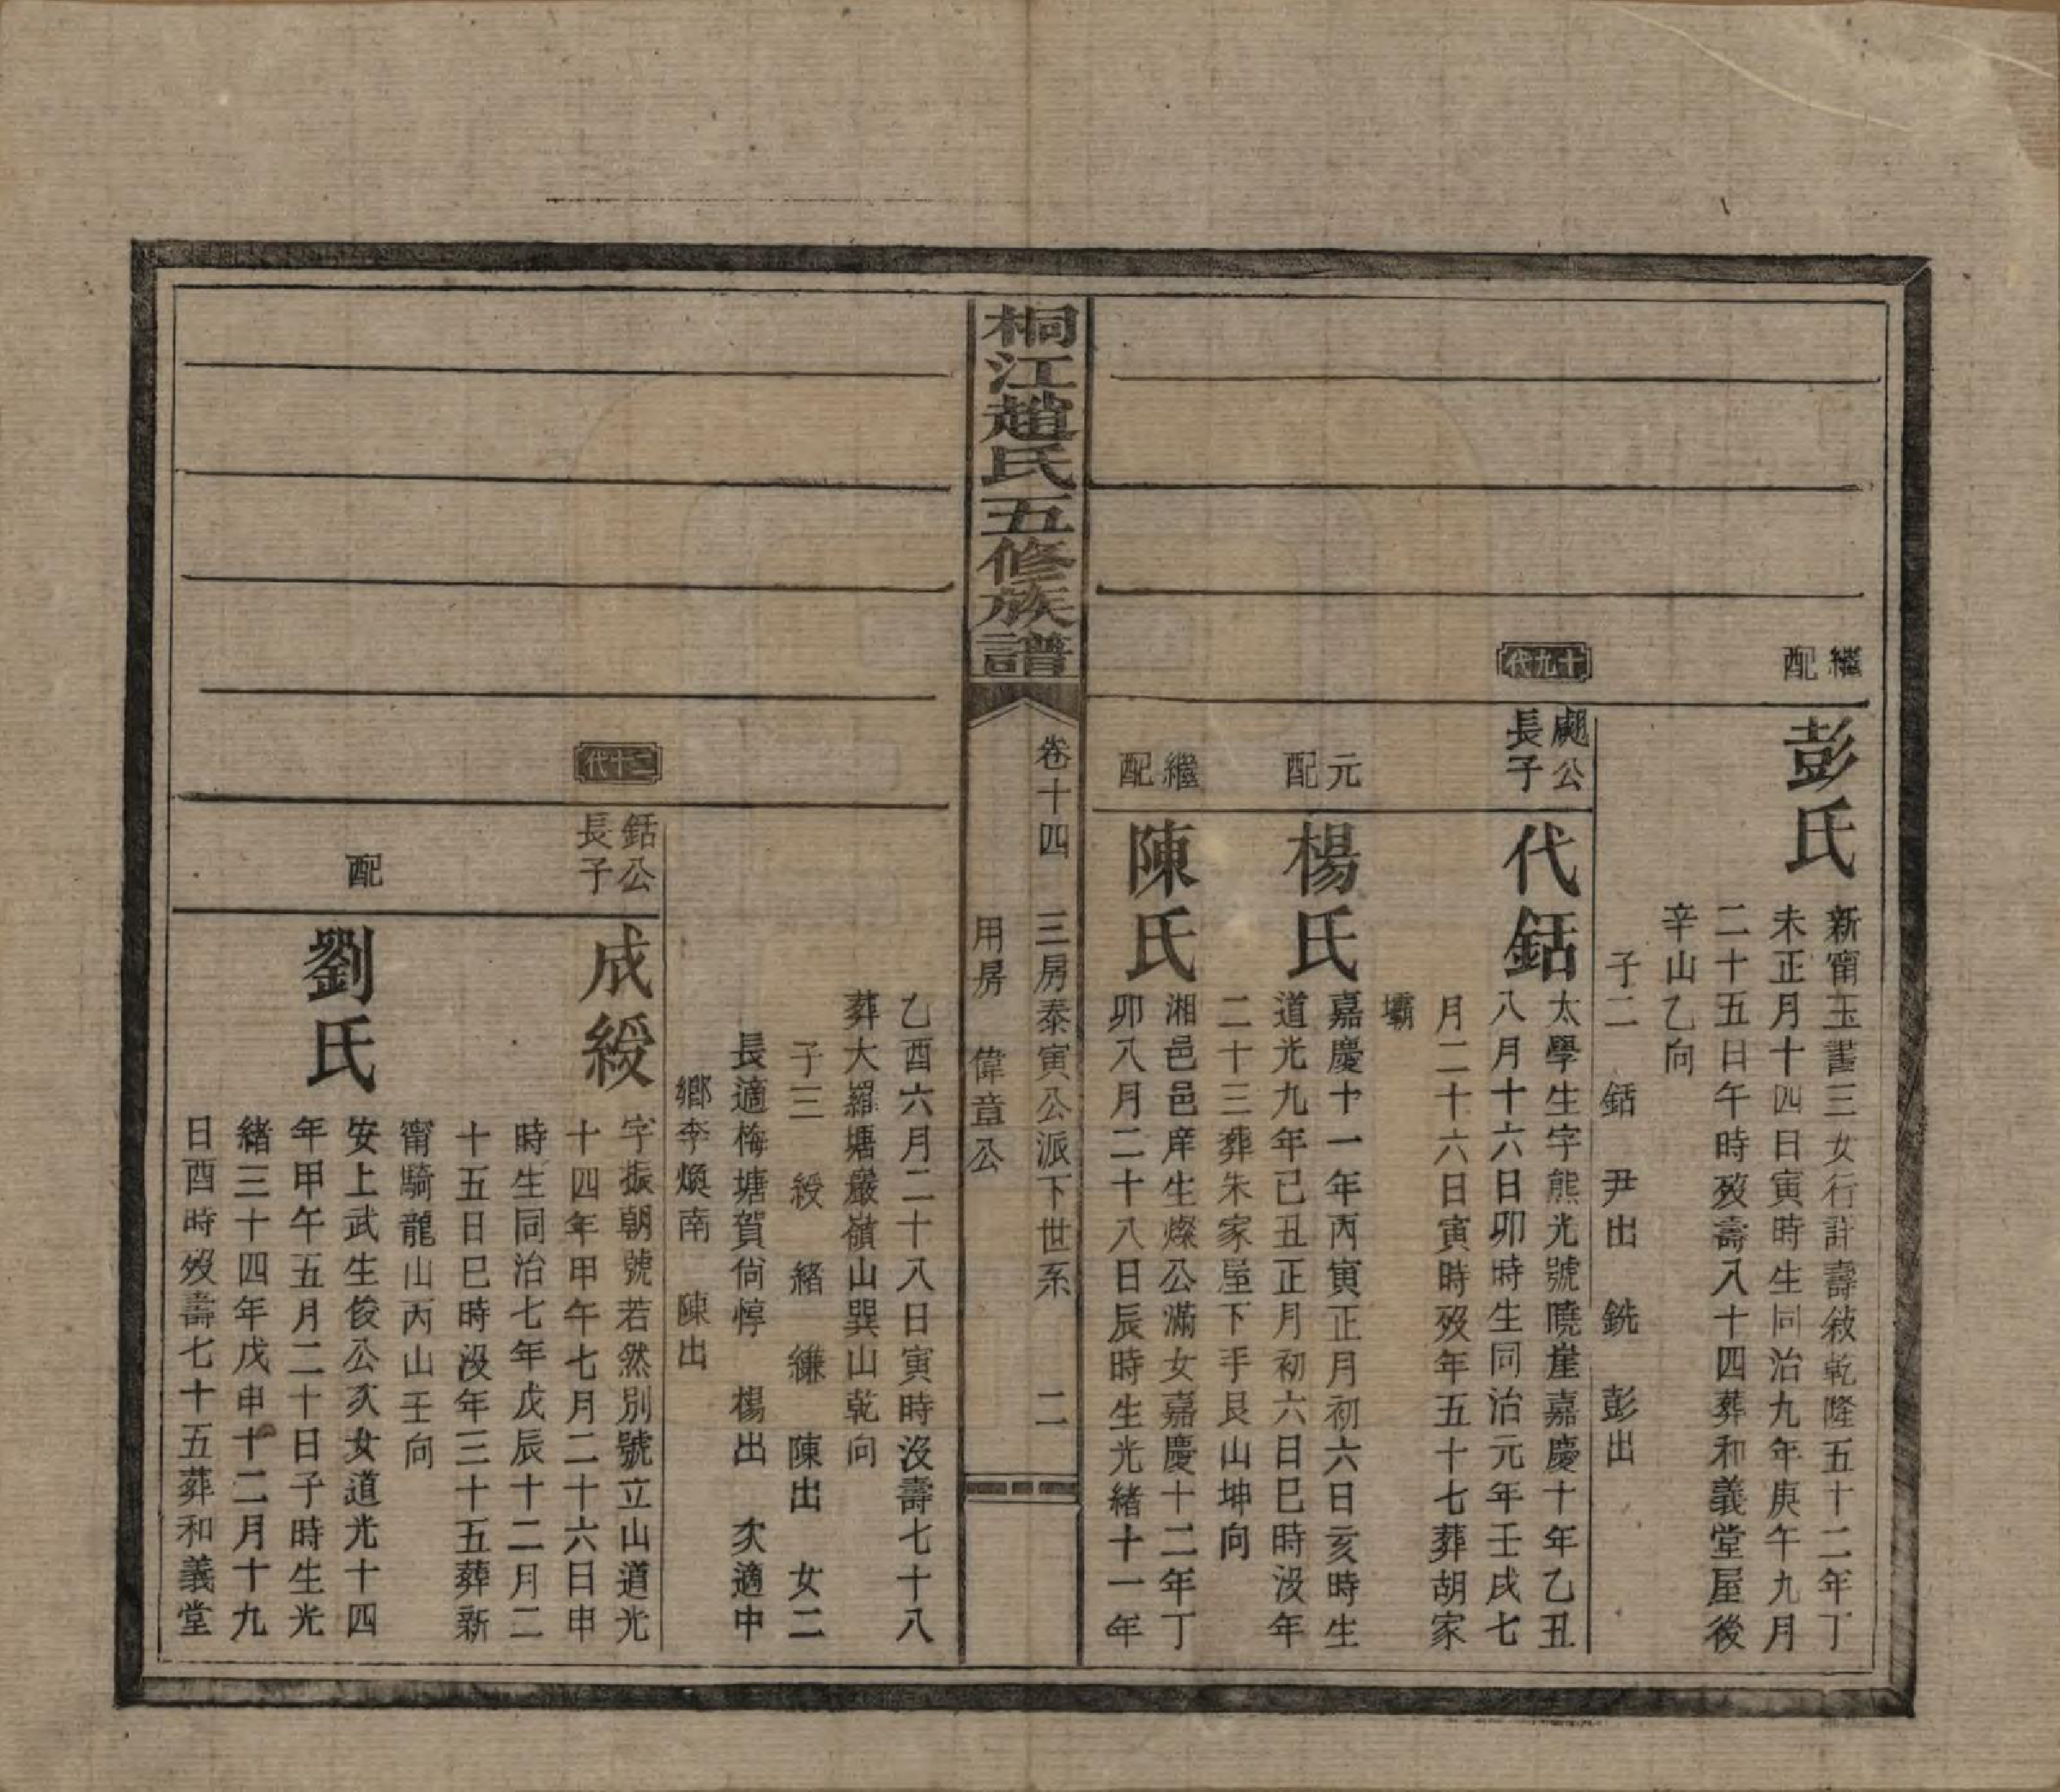 繼
配
彭氏
新甯玉書三女行詳壽敘乾隆五十二年丁
未正月十四日寅時生同治九年庚午九月
二十五日午時歿壽八十四葬和義堂屋後
辛山乙向
子二　銛　尹出　銑　彭出
十九代
颷公
長子
代銛
太學生字熊光號曉崖嘉慶十年乙丑
八月十六日卯時生同治元年壬戌七
月二十六日寅時歿年五十七葬胡家
壩
元
配
楊氏
嘉慶十一年丙寅正月初六日亥時生
道光九年己丑正月初六日巳時沒年
二十三葬朱家屋下手艮山坤向
繼
配
陳氏
湘邑邑庠生燦公滿女嘉慶十二年丁
卯八月二十八日辰時生光緒十一年
桐江趙氏五修族譜
卷十四　三房泰寅公派下世系　二
用房　偉章公
乙酉六月二十八日寅時沒壽七十八
葬大羅塘巖嶺山巽山乾向
子三　綬　緒　縑　陳出　女二
長適梅塘賀尙惇　楊出　次適中
鄉李煥南　陳出
二十代
銛公
長子
成綬
字振朝號若然別號立山道光
十四年甲午七月二十六日申
時生同治七年戊辰十二月二
十五日巳時沒年三十五葬新
甯騎龍山丙山壬向
配
劉氏
安上武生俊公次女道光十四
年甲午五月二十日子時生光
緒三十四年戊申十二月十九
日酉時歿壽七十五葬和義堂